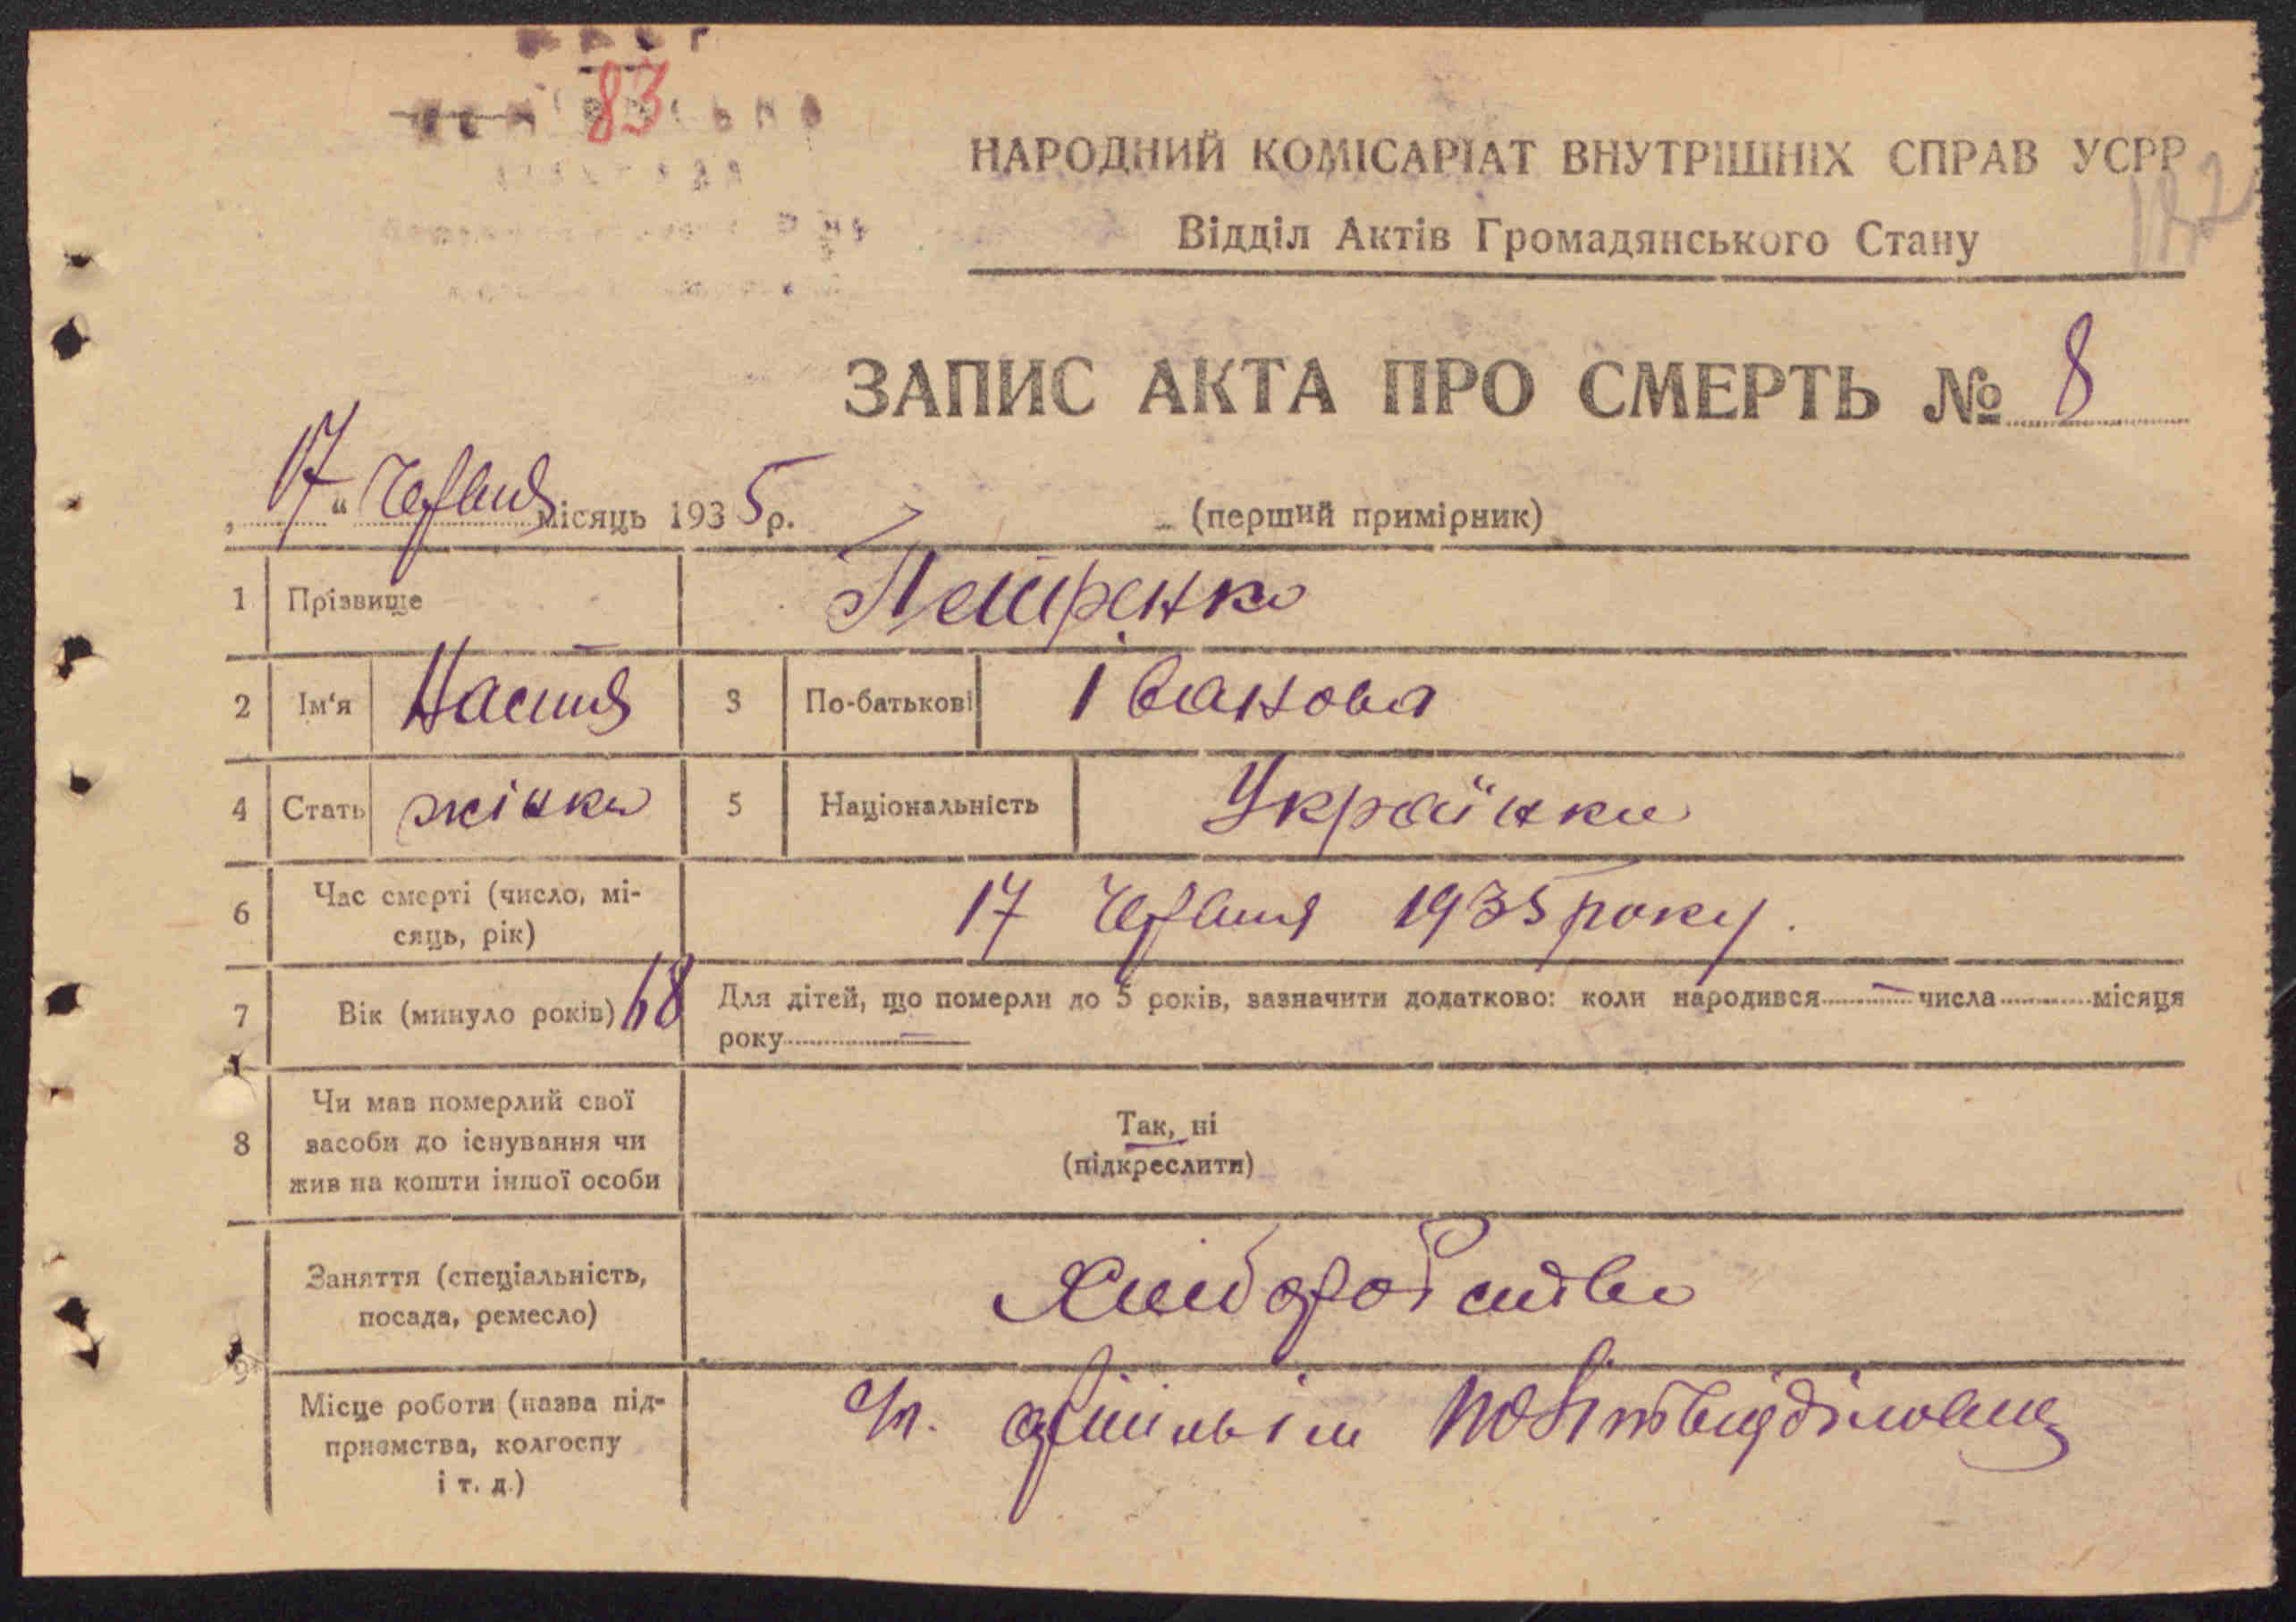 83
НАРОДНИЙ КОМІСАРІАТ ВНУТРІШНІХ СПРАВ УСРР
Відділ Актів Громадянського Стану
ЗАПИС АКТА ПРО СМЕРТЬ № 8
„17“ Червня місяць 1935 р. (перший примірник)
1 Прізвище Петренко
2 Ім'я Настя 3 По-батькові Іванова
4 Стать жінка 5 Національність Українка
6 Час смерті (число, мі-
сяць, рік) 17 Червня 1935 року.
7 Вік (минуло років) 68 Для дітей, що померли до 5 років, зазначити додатково: коли народився — числа місяця
року —
8 Чи мав померлий свої
засоби до існування чи
жив на кошти іншої особи
Так, ні
(підкреслити)
9
Заняття (спеціальність,
посада, ремесло) Хліборобство
Місце роботи (назва під-
приємства, колгоспу
і т. д.)